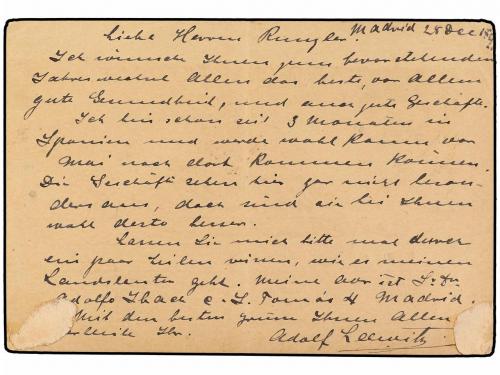 Madrid 28 Dec
Liebe Herren Rungler.
Ich wünsche Ihnen zum bevorstehenden
Jahreswechsel Allen das beste, vor Allem
gute Gesundheit, und auch gute Geschäfte.
Ich bin schon seit 3 Monaten in
Spanien und werde wohl kaum vor
Mai nach dort kommen können.
Die Geschäfte sehen hier gar nicht beson-
ders aus, doch sind sie bei Ihnen
wohl desto besser.
Lassen Sie mich bitte mal durch
ein paar Zeilen wissen, wie es meinen
Landsleuten geht. Meine Adr ist S. Dn
Adolfo c. S. Tomás 4 Madrid.
Mit den besten Ihnen Allen
Ihr.
Adolf